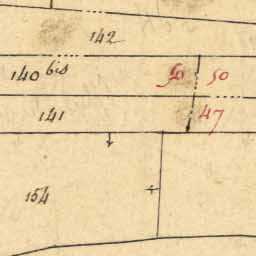 142
140 bis 50 50
141 47
154